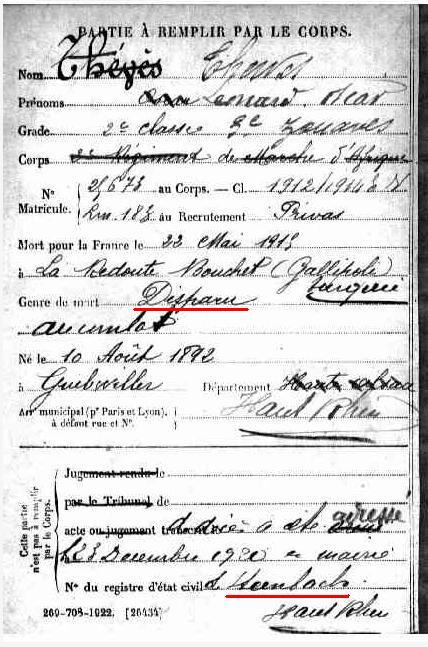 PARTIE À REMPLIR PAR LE CORPS.
Nom Thégès
Prénoms Léonard, Oscar
Grade 2e classe 9e Zouaves
Corps 2e Régiment de Marche d'Afrique
N° Matricule. 25673 au Corps. — Cl. 1912/1914
Lm 183 au Recrutement Privas
Mort pour la France le 22 Mai 1915
à La Redoute Bouchet (Gallipoli)
Turquie
Genre de mort Disparu
au combat
Né le 10 Août 1892
à Guebwiller Département Haute Alsace
Haut Rhin
Arr. municipal (pr Paris et Lyon),
à défaut rue et N°.
Cette partie n'est pas à remplir par le Corps.
Jugement rendu le
par le Tribunal de
acte ou jugement transcrit le
adressé
23 Décembre 1920 en mairie
N° du registre d'état civil d'
Haut Rhin
269-708-1922. [26434]